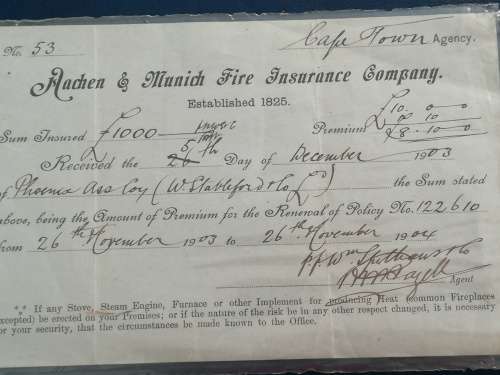 No. 53 Cape Town Agency.
Aachen & Munich Fire Insurance Company.
Established 1825.
£10 0 0
10
Sum Insured £1000 Premium £8-10-0
Received the 5th Day of December 1903
of Phoenix Ass Coy (W. Stableford & Co Ld) the Sum stated
above, being the Amount of Premium for the Renewal of Policy No. 122610
from 26th November 1903 to 26th November 1904
Agent
** If any Stove, Steam Engine, Furnace or other Implement for producing Heat (Common Fireplaces
excepted) be erected on your Premises; or if the nature of the risk be in any other respect changed, it is necessary
for your security, that the circumstances be made known to the Office.